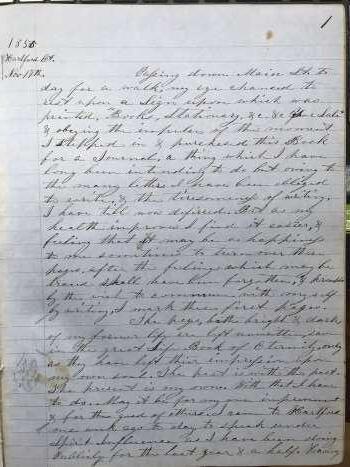 1
1855
Hartford Ct.
Nov. 17th.
Passing down Main St. to
day for a walk, my eye chanced to
rest upon a Sign upon which was
printed, "Books, Stationary, &c. &c
& obeying the impulse of the moment
I stepped in & purchased this Book
for a Journal, a thing which I have
long been intending to do but owing to
the many letters I have been obliged
to write, & the tiresomeness of writing,
I have till now defered. But as my
health improves I find it easier, &
feeling that it may be as happiness
to me sometimes to turn over these
pages, after the feelings which may be
traced shall have been forgotten, &
by the wish to commune with myself
by writing, I mark these first pages.
The pages, both bright & dark
of my former life are but unwritten save
in the great Life Book of Eternity, only
as they have left their impression upon
my own soul. The past is with the past.
The present is my own. With that I have
to do. May it be for my own improvement
& for the good of others. I came to Hartford
one week ago to day to speak under
Spirit Influence, as I have been doing
Publicly for the last year & a half. Having